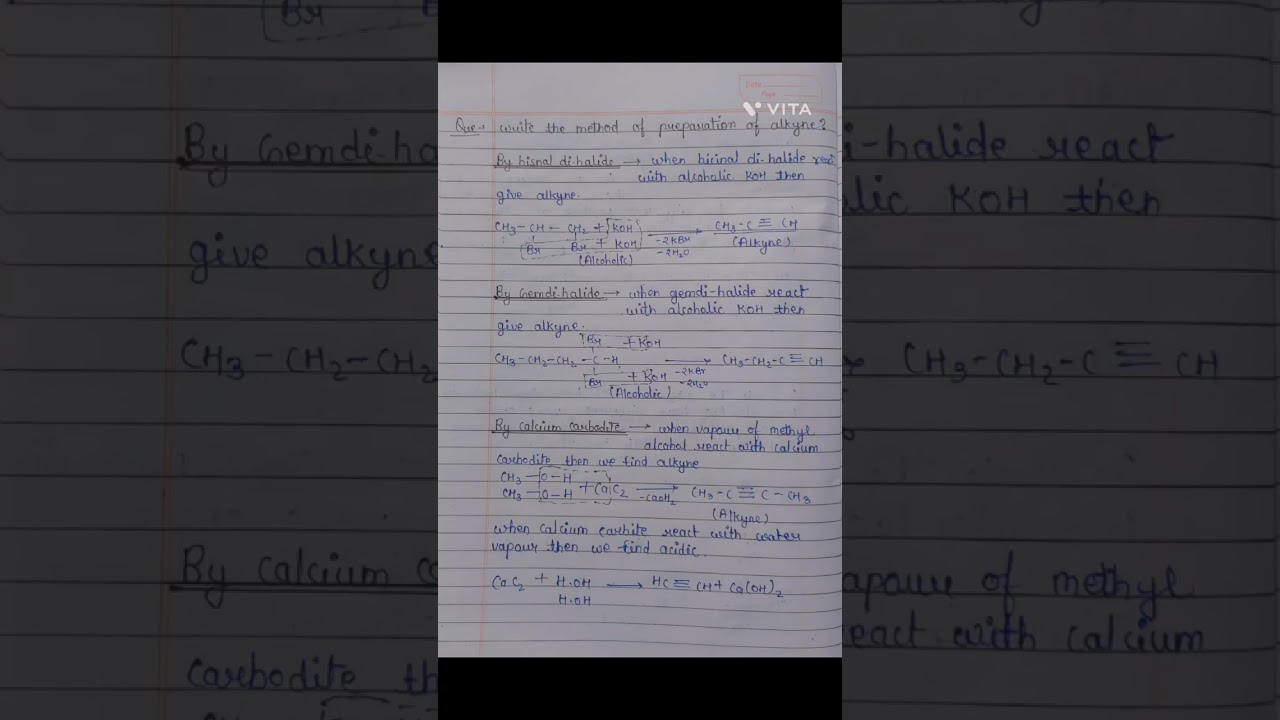 Date
Page
VITA
Que → write the method of preparation of alkyne?
By bisnal di-halide → when bicinal di-halide react
with alcoholic KOH then
give alkyne.
CH3 - CH - CH2 + KOH → CH3-C ≡ CH
Br Br + KOH -2KBr (Alkyne)
(Alcoholic) -2H2O
By Gemdi-halide → when gemdi-halide react
with alcoholic KOH then
give alkyne.
Br + KOH
CH3-CH2-CH2 - C - H → CH3-CH2-C ≡ CH
Br + KOH -2KBr
(Alcoholic) -2H2O
By calcium carbodite → when vapour of methyl
alcohal react with calcium
carbodite then we find alkyne
CH3 - O - H
CH3 - O - H + CaC2 → CH3-C ≡ C - CH3
-CaOH2 (Alkyne)
when calcium carbite react with water
vapour then we find acidic.
CaC2 + H.OH → HC ≡ CH + Ca(OH)2
H.OH